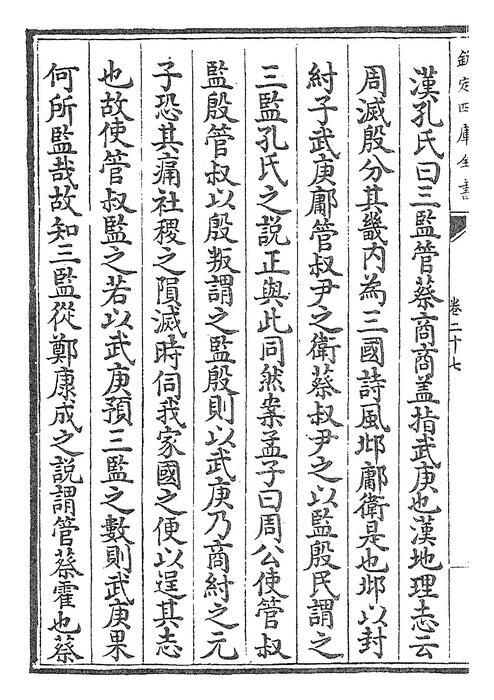 欽定四庫全書
卷二十七
漢孔氏曰三監管蔡商商盖指武庚也漢地理志云
周滅殷分其畿内為三國詩風邶鄘衛是也邶以封
紂子武庚鄘管叔尹之衛蔡叔尹之以監殷民謂之
三監孔氏之説正與此同然案孟子曰周公使管叔
監殷管叔以殷叛謂之監殷則以武庚乃商紂之元
子恐其痛社稷之隕滅時伺我家國之便以逞其志
也故使管叔監之若以武庚預三監之數則武庚果
何所監哉故知三監從鄭康成之説謂管蔡霍也蔡